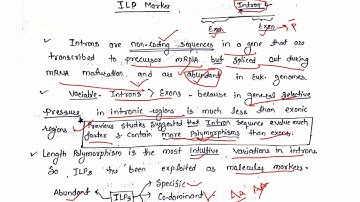 ILP Marker
Intron
Exon Exon → P
✓ Introns are non-coding sequences in a gene that are
transcribed to precursor mRNA but spliced out during
mRNA maturation, and are abundant in Euk. genomes.
✓ Variable - Introns > Exons - because in general selective
Pressure in intronic regions is much less than exonic
regions. Previous studies suggested that Intron sequence evolve much
faster & contain more Polymorphisms than exons.
✓ Length Polymorphism is the most intuitive variations in introns.
So, ILPs have been exploited as molecular markers.
Abundant ← ILPs → Specific
Codominant AA